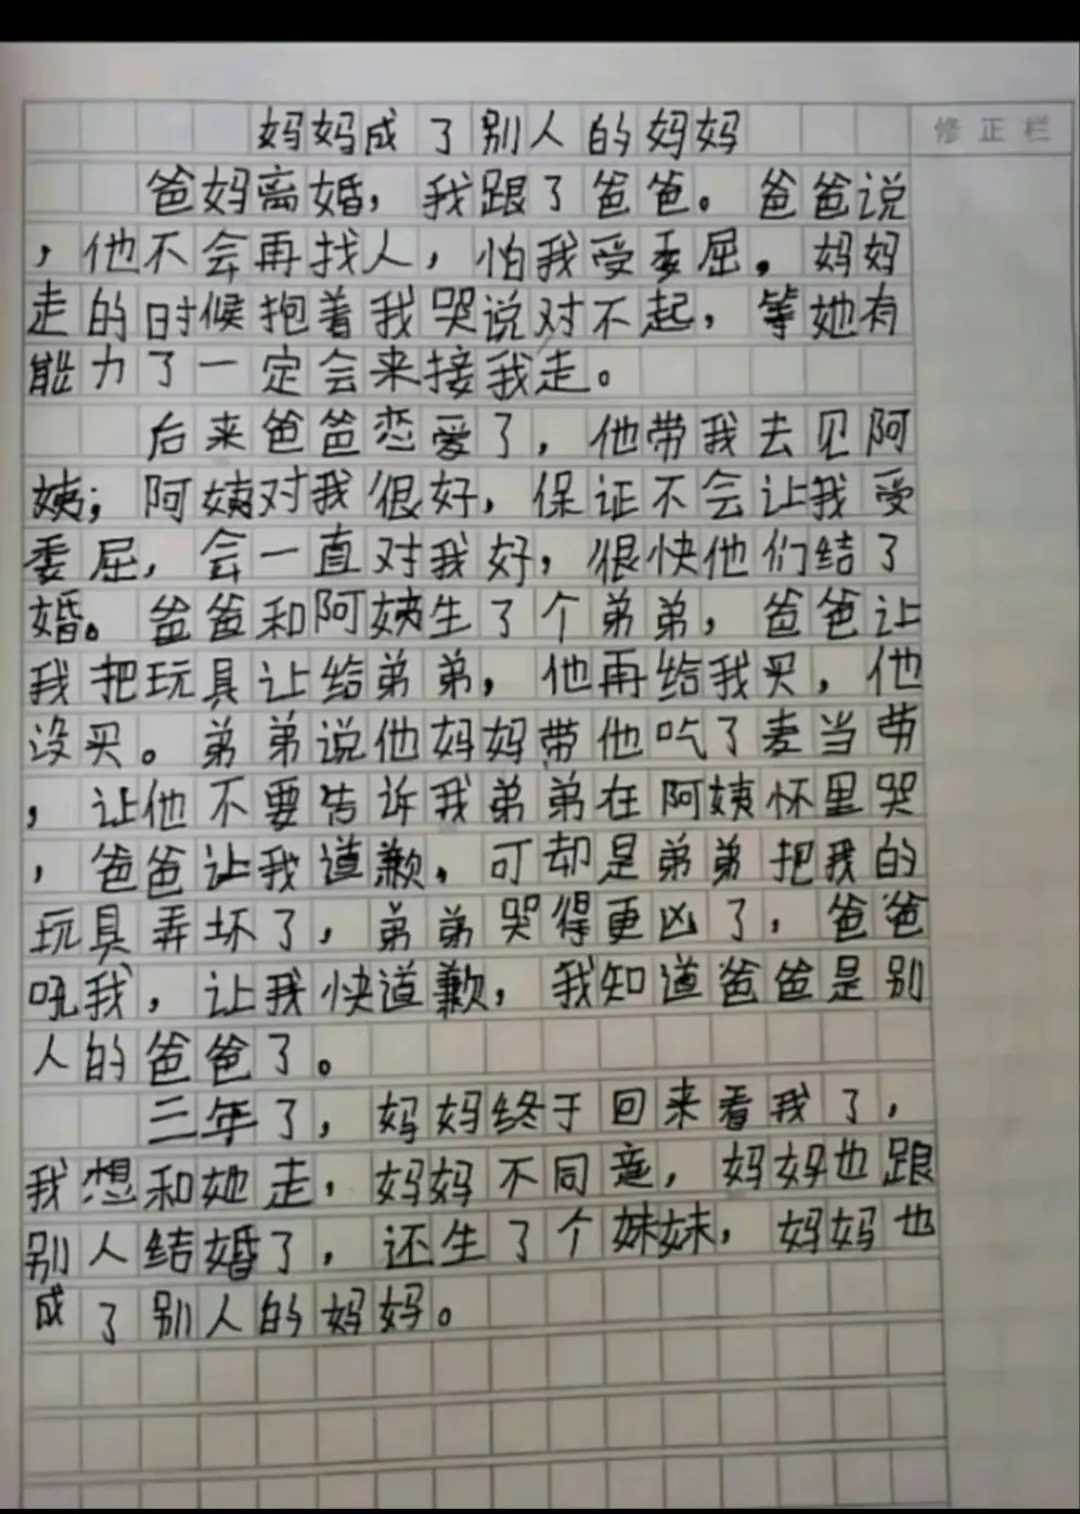 妈妈成了别人的妈妈
修正栏
爸妈离婚，我跟了爸爸。爸爸说
，他不会再找人，怕我受委屈。妈妈
走的时候抱着我哭说对不起，等她有
能力了一定会来接我走。
后来爸爸恋爱了，他带我去见阿
姨；阿姨对我很好，保证不会让我受
委屈，会一直对我好，很快他们结了
婚。爸爸和阿姨生了个弟弟，爸爸让
我把玩具让给弟弟，他再给我买，他
没买。弟弟说他妈妈带他吃了麦当劳
，让他不要告诉我弟弟在阿姨怀里哭
，爸爸让我道歉，可却是弟弟把我的
玩具弄坏了，弟弟哭得更凶了，爸爸
吼我，让我快道歉，我知道爸爸是别
人的爸爸了。
三年了，妈妈终于回来看我了，
我想和她走，妈妈不同意，妈妈也跟
别人结婚了，还生了个妹妹，妈妈也
成了别人的妈妈。